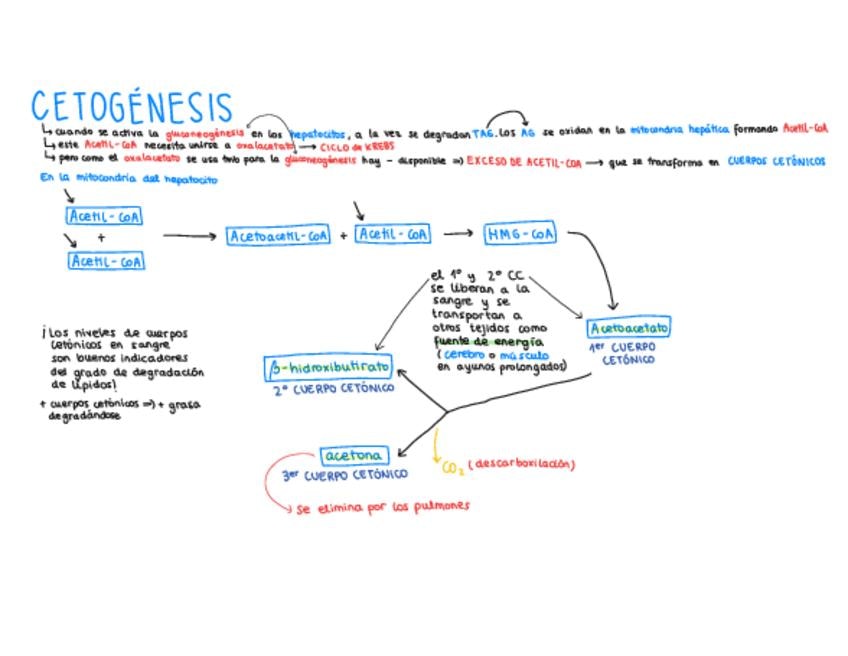 CETOGÉNESIS
↳ cuando se activa la gluconeogénesis en los hepatocitos, a la vez se degradan TAG. Los AG se oxidan en la mitocondria hepática formando Acetil-CoA
↳ este Acetil-CoA necesita unirse a oxalacetato → CICLO de KREBS
↳ pero como el oxalacetato se usa tanto para la gluconeogénesis hay - disponible => EXCESO DE ACETIL-COA → que se transforma en CUERPOS CETÓNICOS
En la mitocondria del hepatocito
Acetil-CoA
+
Acetil-CoA
Acetoacetil-CoA + Acetil-CoA → HMG-CoA
el 1º y 2º CC
se liberan a la
sangre y se
transportan a
otros tejidos como
fuente de energía
(cerebro o músculo
en ayunos prolongados)
Acetoacetato
1er CUERPO
CETÓNICO
¡Los niveles de cuerpos
cetónicos en sangre
son buenos indicadores
del grado de degradación
de lípidos!
+ cuerpos cetónicos => + grasa
degradándose
β-hidroxibutirato
2º CUERPO CETÓNICO
acetona
3er CUERPO CETÓNICO
CO₂ (descarboxilación)
se elimina por los pulmones